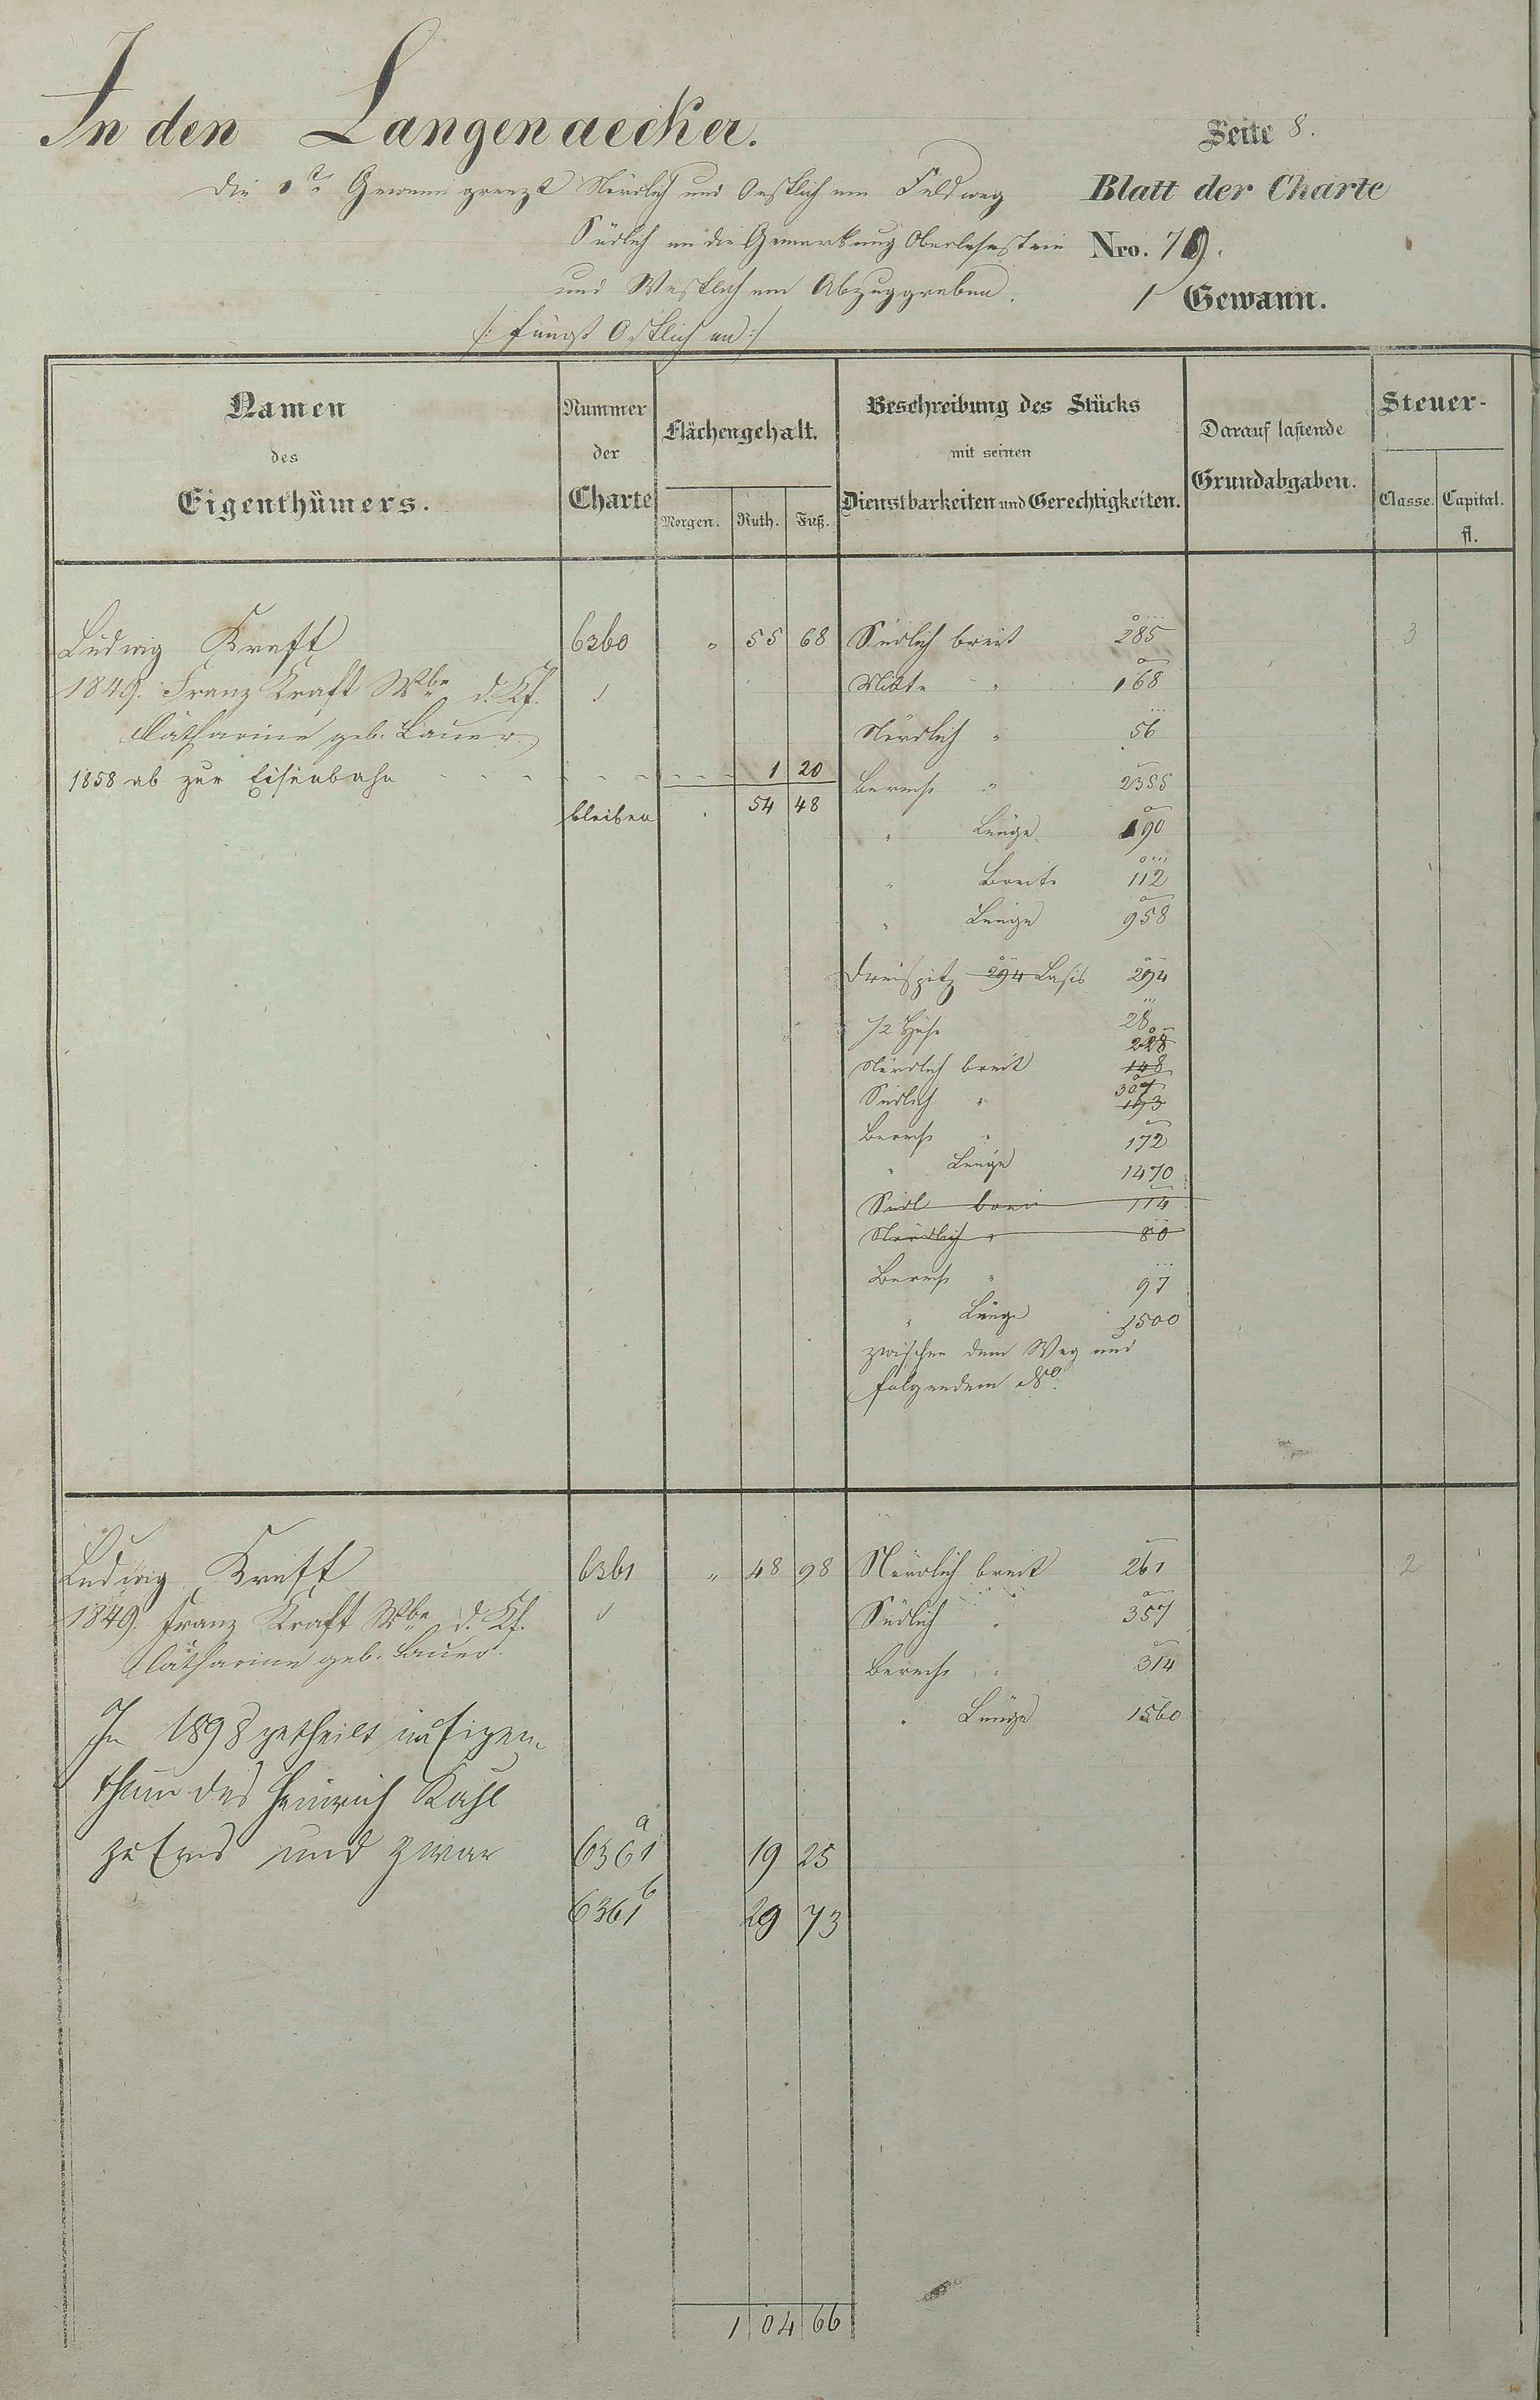 In den Langenaecker.
Seite 8.
Die 1te Gewann grenzt Nördlich und Oestlich am Feldweg
Blatt der Charte
Südlich an die Gemarkung Oberlahnstein
Nro. 79.
und Westlich am Abzuggraben.
1 Gewann.
/: fängt Östlich an :/
Namen des Eigenthümers.
Nummer der Charte
Flächengehalt.
Morgen. Ruth. Fuß.
Beschreibung des Stücks mit seinen Dienstbarkeiten und Gerechtigkeiten.
Darauf lastende Grundabgaben.
Steuer-
Classe. Capital.
fl.
Ludwig Kraft 6360 " 55 68 Südlich breit 285 3
1849. Franz Kraft Wbe d. Kf. Mitte " 168
Catharine geb. Lauer Nördlich " 56
1858 ab zur Eisenbahn 1 20 Berech " 2355
bleiben . 54 48
" Länge 190
" Breite 112
" Länge 958
Dreispitz 294 Basis 294
1/2 Höhe 28
228
Nördlich breit 148
307
Südlich " 193
Berech " 172
" Länge 1470
Südl breit 114
Nördlich " 80
Berech " 97
" Länge 1500
zwischen dem Weg und
folgendem No.
Ludwig Kraft 6361 " 48 98 Nördlich breit 261 2
1849. Franz Kraft Wbe d. Kf. Südlich " 357
Catharine geb. Lauer. Berech " 314
" Länge 1560
In 1898 getheilt im Eigen-
thum des Heinrich Kahl
zu Ems und zwar 6361a 19 25
6361b 29 73
1 04 66